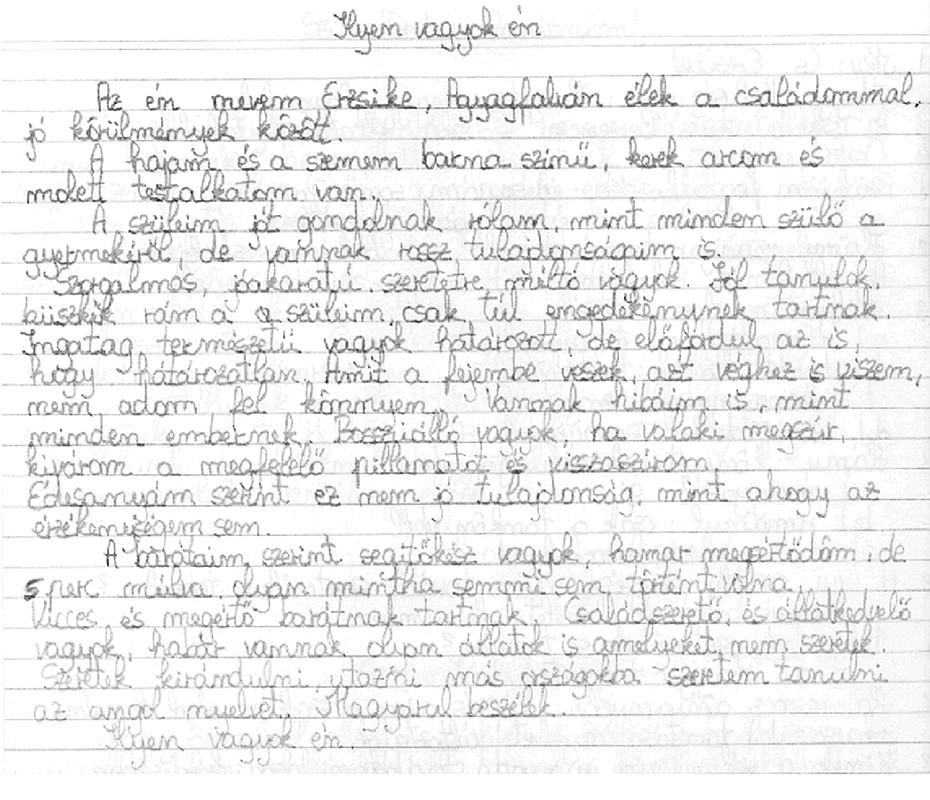 Ilyen vagyok én
Az én nevem Erzsike, Agyagfalván élek a családommal,
jó körülmények között.
A hajam és a szemem barna színű, kerek arcom és
molett testalkatom van.
A szüleim jót gondolnak rólam, mint minden szülő a
gyermekéről, de vannak rossz tulajdonságaim is.
Szorgalmas, jóakaratú, szeretetre méltó vagyok. Jól tanulok,
büszkék rám a a szüleim, csak túl engedékenynek tartnak.
Ingatag természetű vagyok határozott, de előfordul az is,
hogy határozatlan. Amit a fejembe veszek, azt véghez is viszem,
nem adom fel könnyen. Vannak hibáim is, mint
minden embernek. Bosszúálló vagyok, ha valaki megszúr,
kivárom a megfelelő pillanatot és visszaszúrom.
Édesanyám szerint ez nem jó tulajdonság, mint ahogy az
érzékenységem sem.
A barátaim szerint segítőkész vagyok, hamar megsértődöm, de
5 perc múlva olyan mintha semmi sem történt volna.
Vicces és megértő barátnak tartnak. Családszerető, és állatkedvelő
vagyok, habár vannak olyan állatok is amelyeket nem szeretek.
Szeretek kirándulni, utazni más országokba szeretem tanulni
az angol nyelvet. Magyarul beszélek.
Ilyen vagyok én.